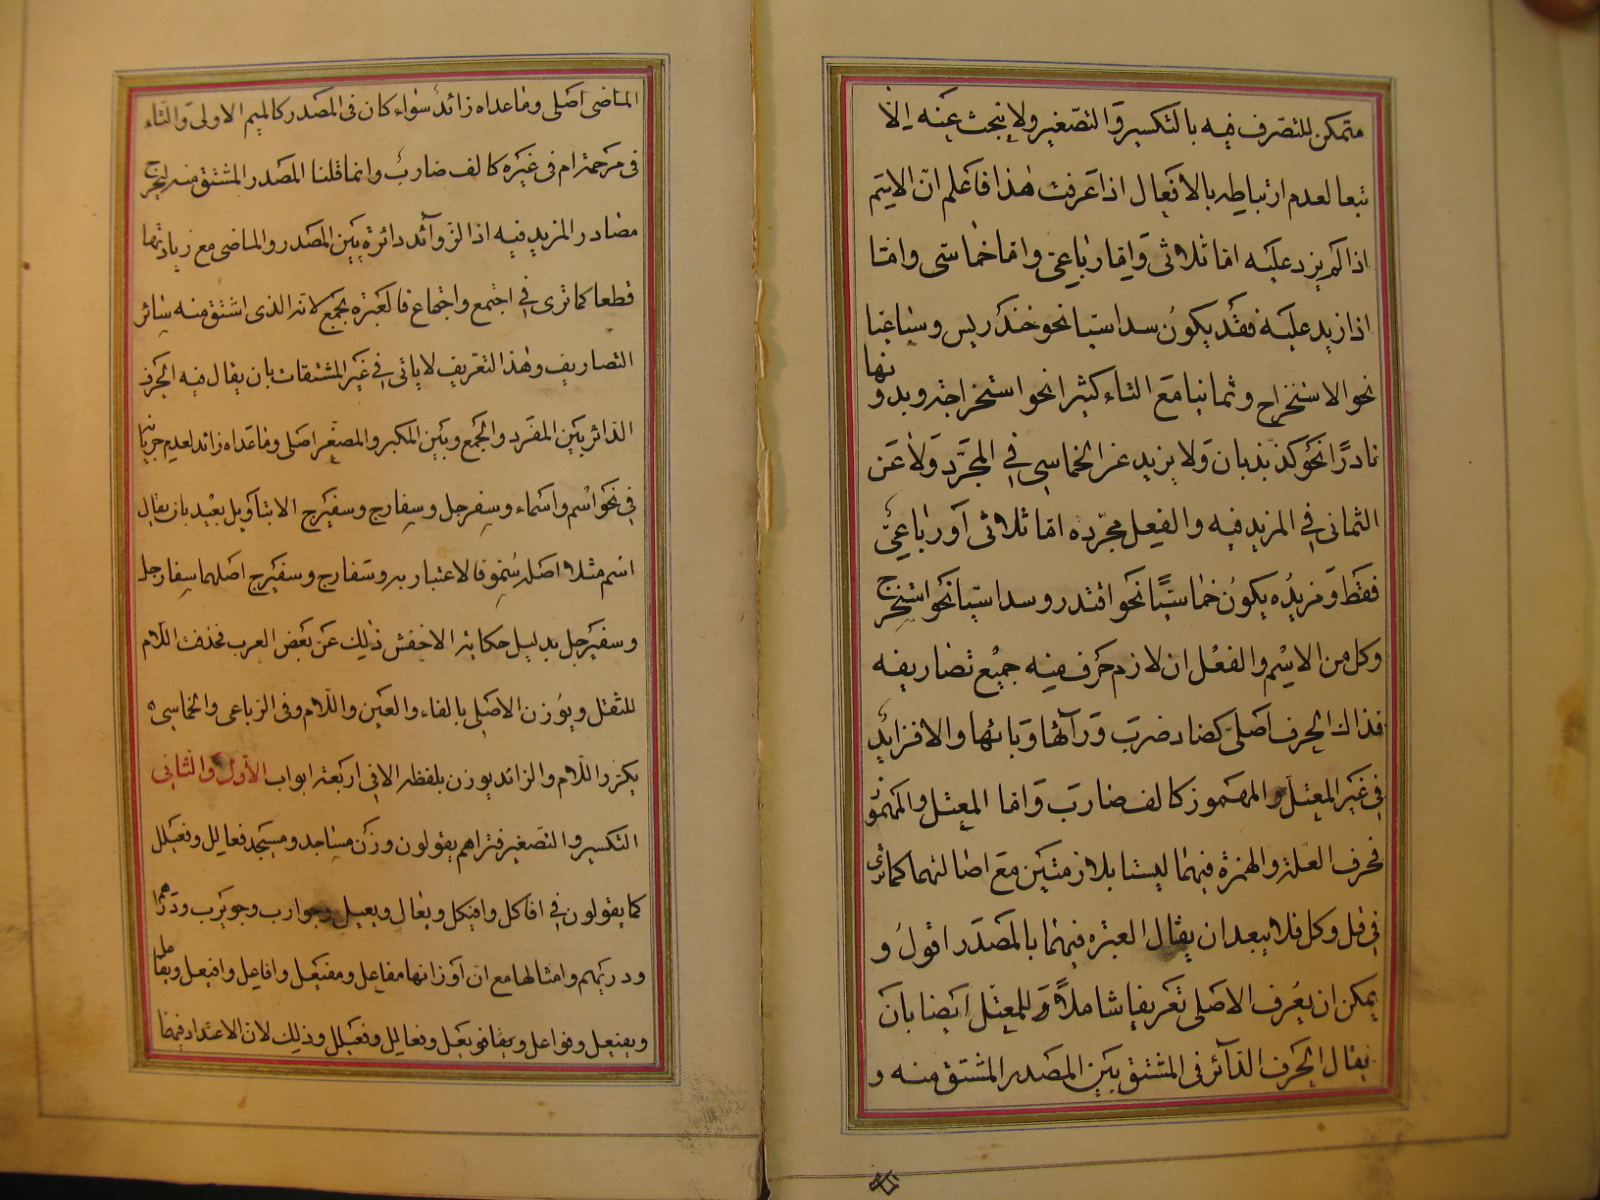 متمكن للتصرف فيه بالتكسير والتصغير ولا يبحث عنه الا
تبعا لعدم ارتباطه بالافعال اذا عرفت هذا فاعلم ان الاسم
اذا لم يزد عليه اما ثلاثى واما رباعى واما خماسى واما
اذا زيد عليه فقد يكون سداسيا نحو خندريس وسباعيا
نحو الاستخراج وثمانيا مع التاء كثيرا نحو استخراجة وبدونها
نادرًا نحو كذبذبان ولا يزيد عن الخماسى فى المجرّد ولا عن
الثمانى فى المزيد فيه والفعل مجرّده اما ثلاثى او رباعىّ
فقط ومزيدُه يكونُ خماسيًا نحو اقتدر وسداسيا نحو استخرج
وكل من الاسم والفعل ان لازم حرف فيه جميع تصاريفه
فذاك الحرف اصلى كضاد ضرب ورآئها وبائها والا فزايد
فى غير المعتل والمهموز كالف ضارب واما المعتل والمهموز
فحرف العلة والهمزة فيهما ليستا بلازمتين مع اصالتهما كما ترى
فى قل وكل فلا يبعد ان يقال العبرة فيهما بالمصدر اقولُ و
يمكن ان يعرف الاصلى تعريفا شاملاً وللمعتل ايضا بان
يقال الحرف الدّآئر فى المشتق بين المصدر المشتق منه و
الماضى اصلى وما عداه زائد سواء كان فى المصدر كالميم الاولى والتاء
فى مرحمة ام فى غيره كالف ضارب وانما قلنا المصدر المشتق منه ليخرج
مصادر المزيد فيه اذ الزوآئد دائرة بين المصدر والماضى مع زيادتها
قطعا كما ترى فى اجتمع واجتماع فالعبرة بجمع لانه الذى اشتق منه سائر
التصاريف وهذا التعريف لا ياتى فى غير المشتقات بان يقال فيه الحرف
الدائر بين المفرد والجمع وبين المكبر والمصغر اصلى وما عداه زائد لعدم جريانها
فى نحو اسم واسماء وسفرجل وسفارج وسفيرج الا بتاويل بعيد بان يقال
اسم مثلا اصله سمو فالاعتبار به وسفارج وسفيرج اصلهما سفارجل
وسفيرجل بدليل حكاية الاخفش ذلك عن بعض العرب فحذفت اللام
للثقل ويوزن الاصلى بالفاء والعين واللام وفى الرباعى والخماسى
يكرر اللام والزائد يوزن بلفظه الا فى اربعة ابواب الاول والثانى
التكسير والتصغير فتراهم يقولون وزن مساجد ومسيجد فعالل وفعيلل
كما يقولون فى افاكل وافيكل ويعال ويعيل وجوارب وجويرب ودراهم
ودريهم وامثالها مع ان اوزانها مفاعل ومفيعل وافاعل وافيعل ويفاعل
ويفيعل وفواعل وفويعل وفعالل وفعيلل وذلك لان الاعتداد فيهما